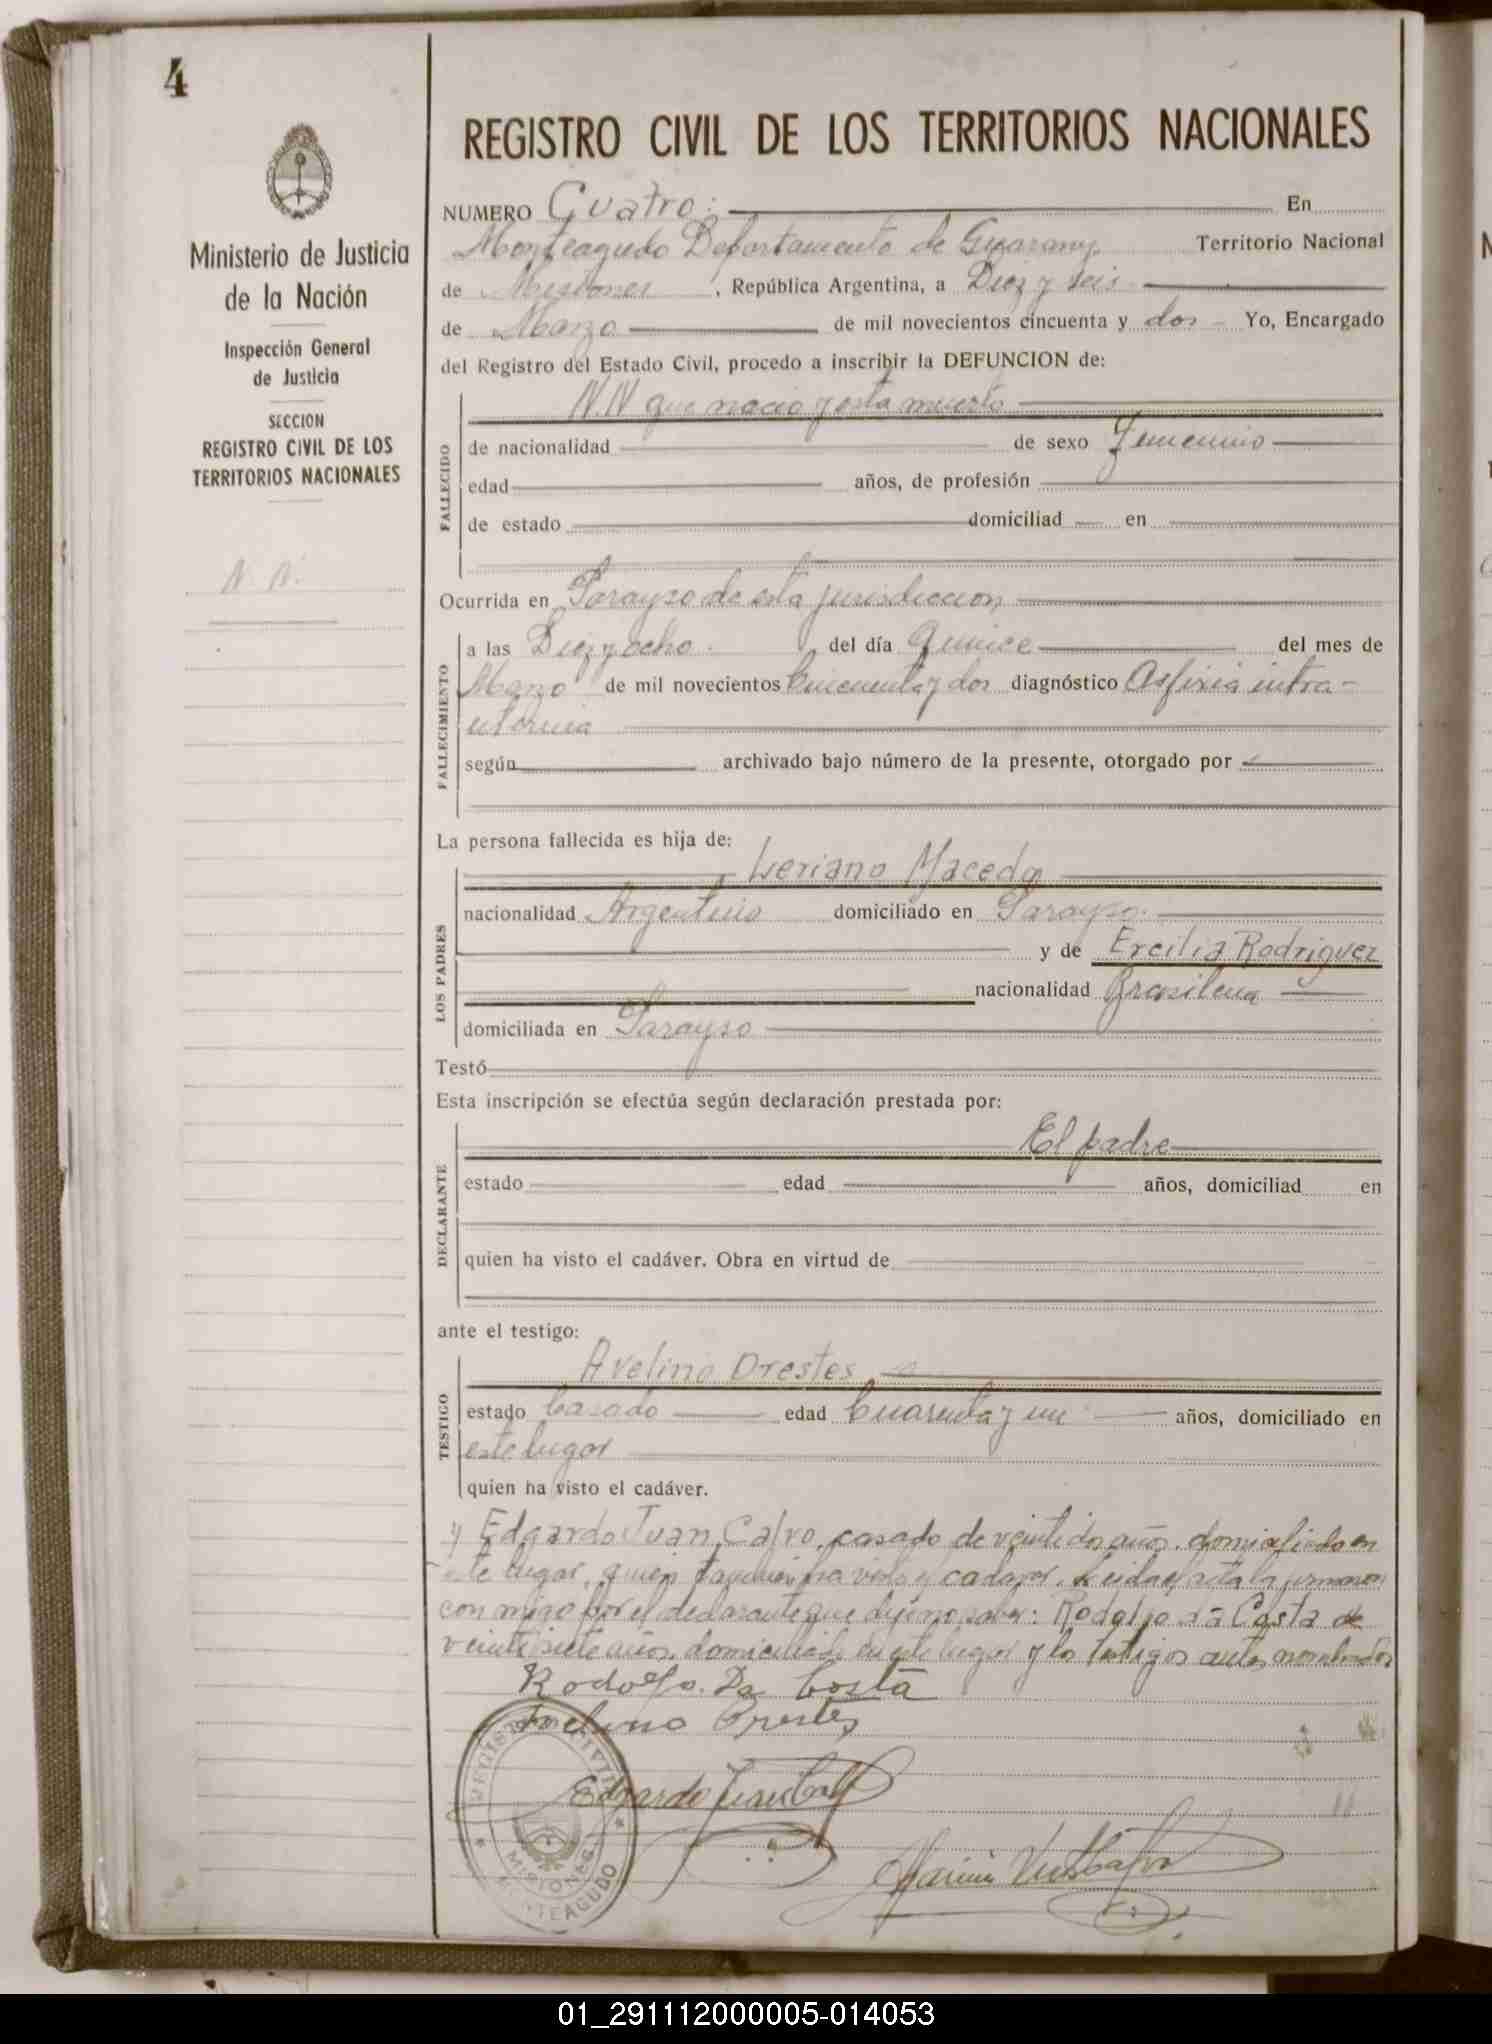 4
Ministerio de Justicia
de la Nación
Inspección General
de Justicia
SECCION
REGISTRO CIVIL DE LOS
TERRITORIOS NACIONALES
N. N.
REGISTRO CIVIL DE LOS TERRITORIOS NACIONALES
NUMERO Cuatro: En
Monteagudo Departamento de Guarany Territorio Nacional
de Misiones, República Argentina, a Diez y seis
de Marzo de mil novecientos cincuenta y dos Yo, Encargado
del Registro del Estado Civil, procedo a inscribir la DEFUNCION de:
FALLECIDO
N.N que nacio y esta muerta
de nacionalidad de sexo Femenino
edad años, de profesión
de estado domiciliad en
Ocurrida en Parayso de esta jurisdiccion
FALLECIMIENTO
a las Diez y ocho del día Quince del mes de
Marzo de mil novecientos Cincuenta y dos diagnóstico Asfixia intra-
uterina
según archivado bajo número de la presente, otorgado por
La persona fallecida es hija de:
LOS PADRES
Leriano Macedo
nacionalidad Argentino domiciliado en Parayso.
y de Ercilia Rodriguez
nacionalidad Brasilena
domiciliada en Parayso
Testó
Esta inscripción se efectúa según declaración prestada por:
DECLARANTE
El padre
estado edad años, domiciliad en
quien ha visto el cadáver. Obra en virtud de
ante el testigo:
TESTIGO
Avelino Orestes
estado Casado edad Cuarenta y un años, domiciliado en
este lugar
quien ha visto el cadáver.
y Edgardo Juan Calvo, casado de veintidos años, domiciliado en
este lugar, quien tambien ha visto el cadaver. Leida el acta la firmaron
con migo por el declarante que dijo no saber: Rodolfo da Costa de
veintisiete años, domiciliado en este lugar y los testigos antes nombrados
Rodolfo. Da Costa
Avelino Orestes
Edgardo Juan Calvo
REGISTRO CIVIL
MISIONES
MONTEAGUDO
01_291112000005-014053